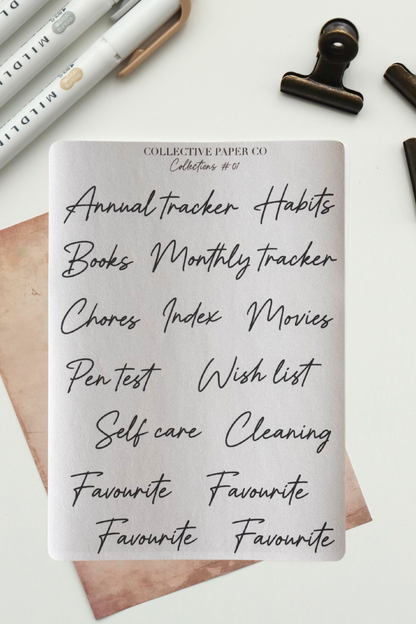 MILDLI
MILDLIN
MILDLIN
COLLECTIVE PAPER CO
Collections # 01
Annual tracker Habits
Books Monthly tracker
Chores Index Movies
Pen test Wish list
Self care Cleaning
Favourite Favourite
Favourite Favourite